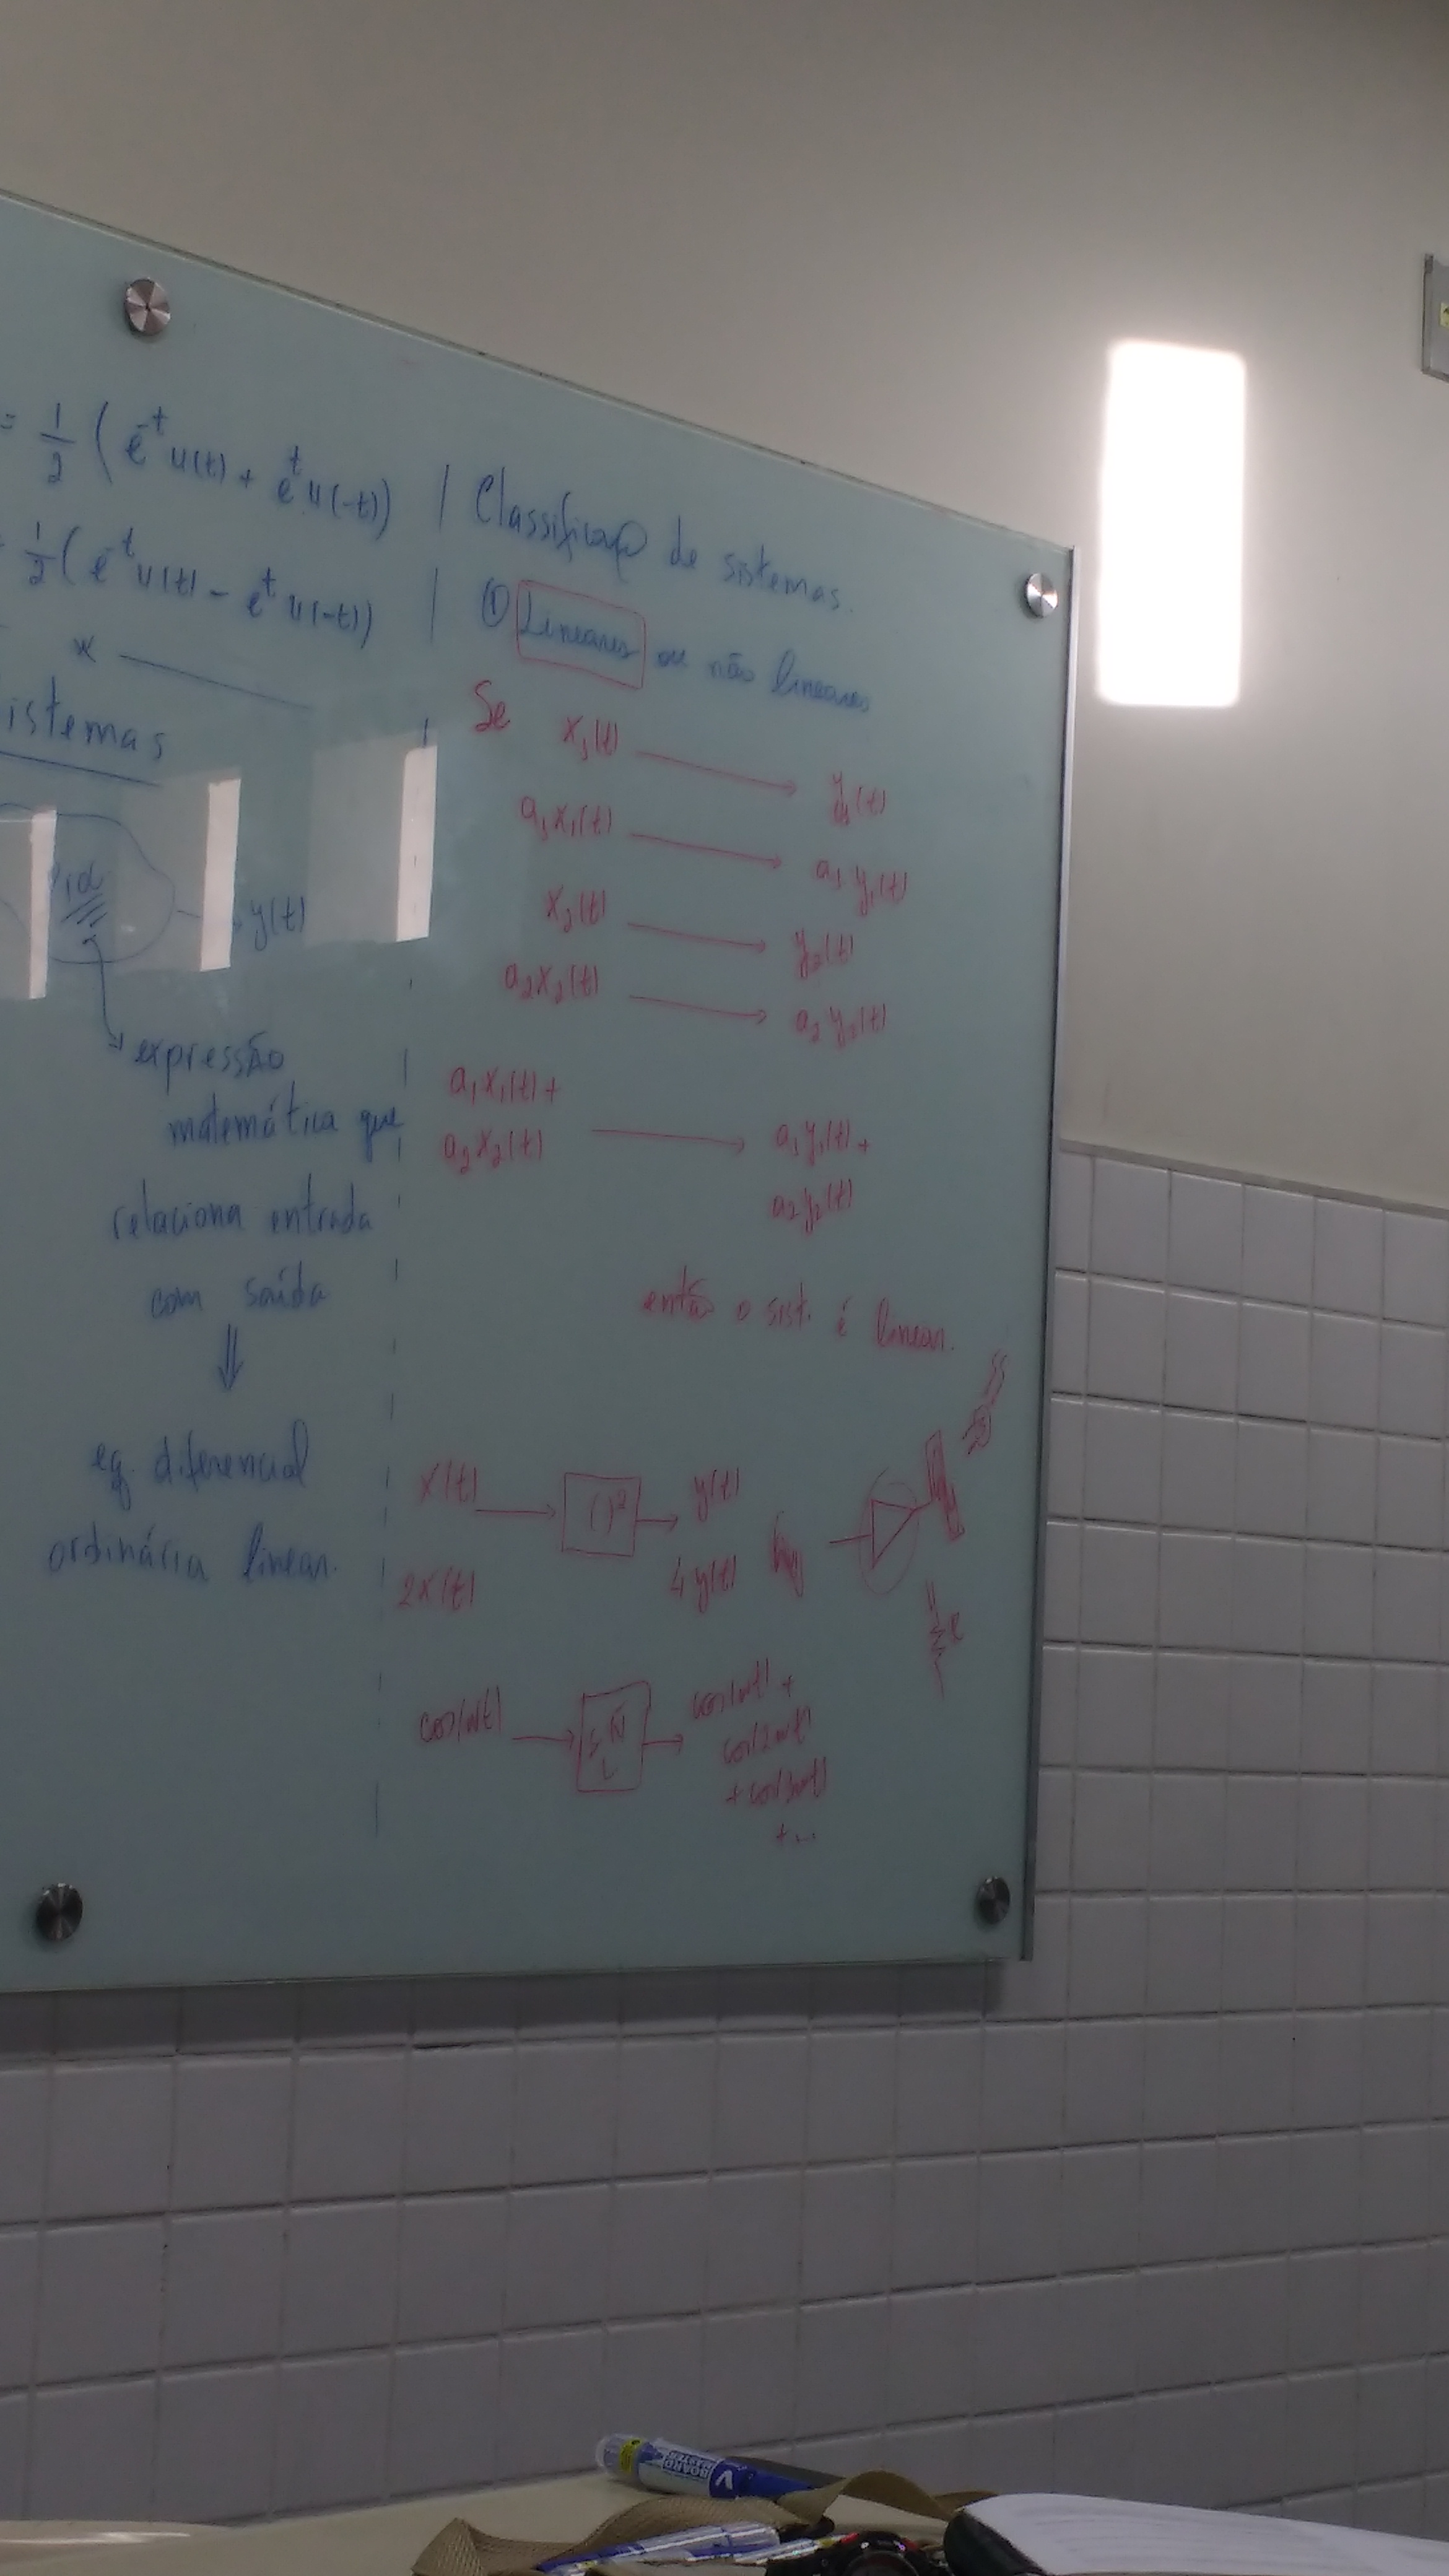 = 1/2 (e^-t u(t) + e^t u(-t))
= 1/2 (e^-t u(t) - e^t u(-t))
istemas
y(t)
expressão
matemática que
relaciona entrada
com saída
⇓
eq. diferencial
ordinária linear.
Classificação de sistemas.
① Lineares ou não lineares
Se x₁(t) → y₁(t)
a₁x₁(t) → a₁y₁(t)
x₂(t) → y₂(t)
a₂x₂(t) → a₂y₂(t)
a₁x₁(t)+
a₂x₂(t) → a₁y₁(t)+
a₂y₂(t)
então o sist. é linear.
x(t) → ( )² → y(t)
2x(t) 4y(t)
cos(wt) → → cos(wt) +
cos(2wt)
+ cos(3wt)
+ ...
BOARD
MASTER
V